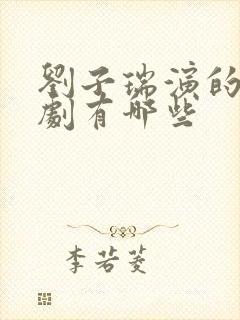 劉子瑞演的
劇有哪些
李若菱